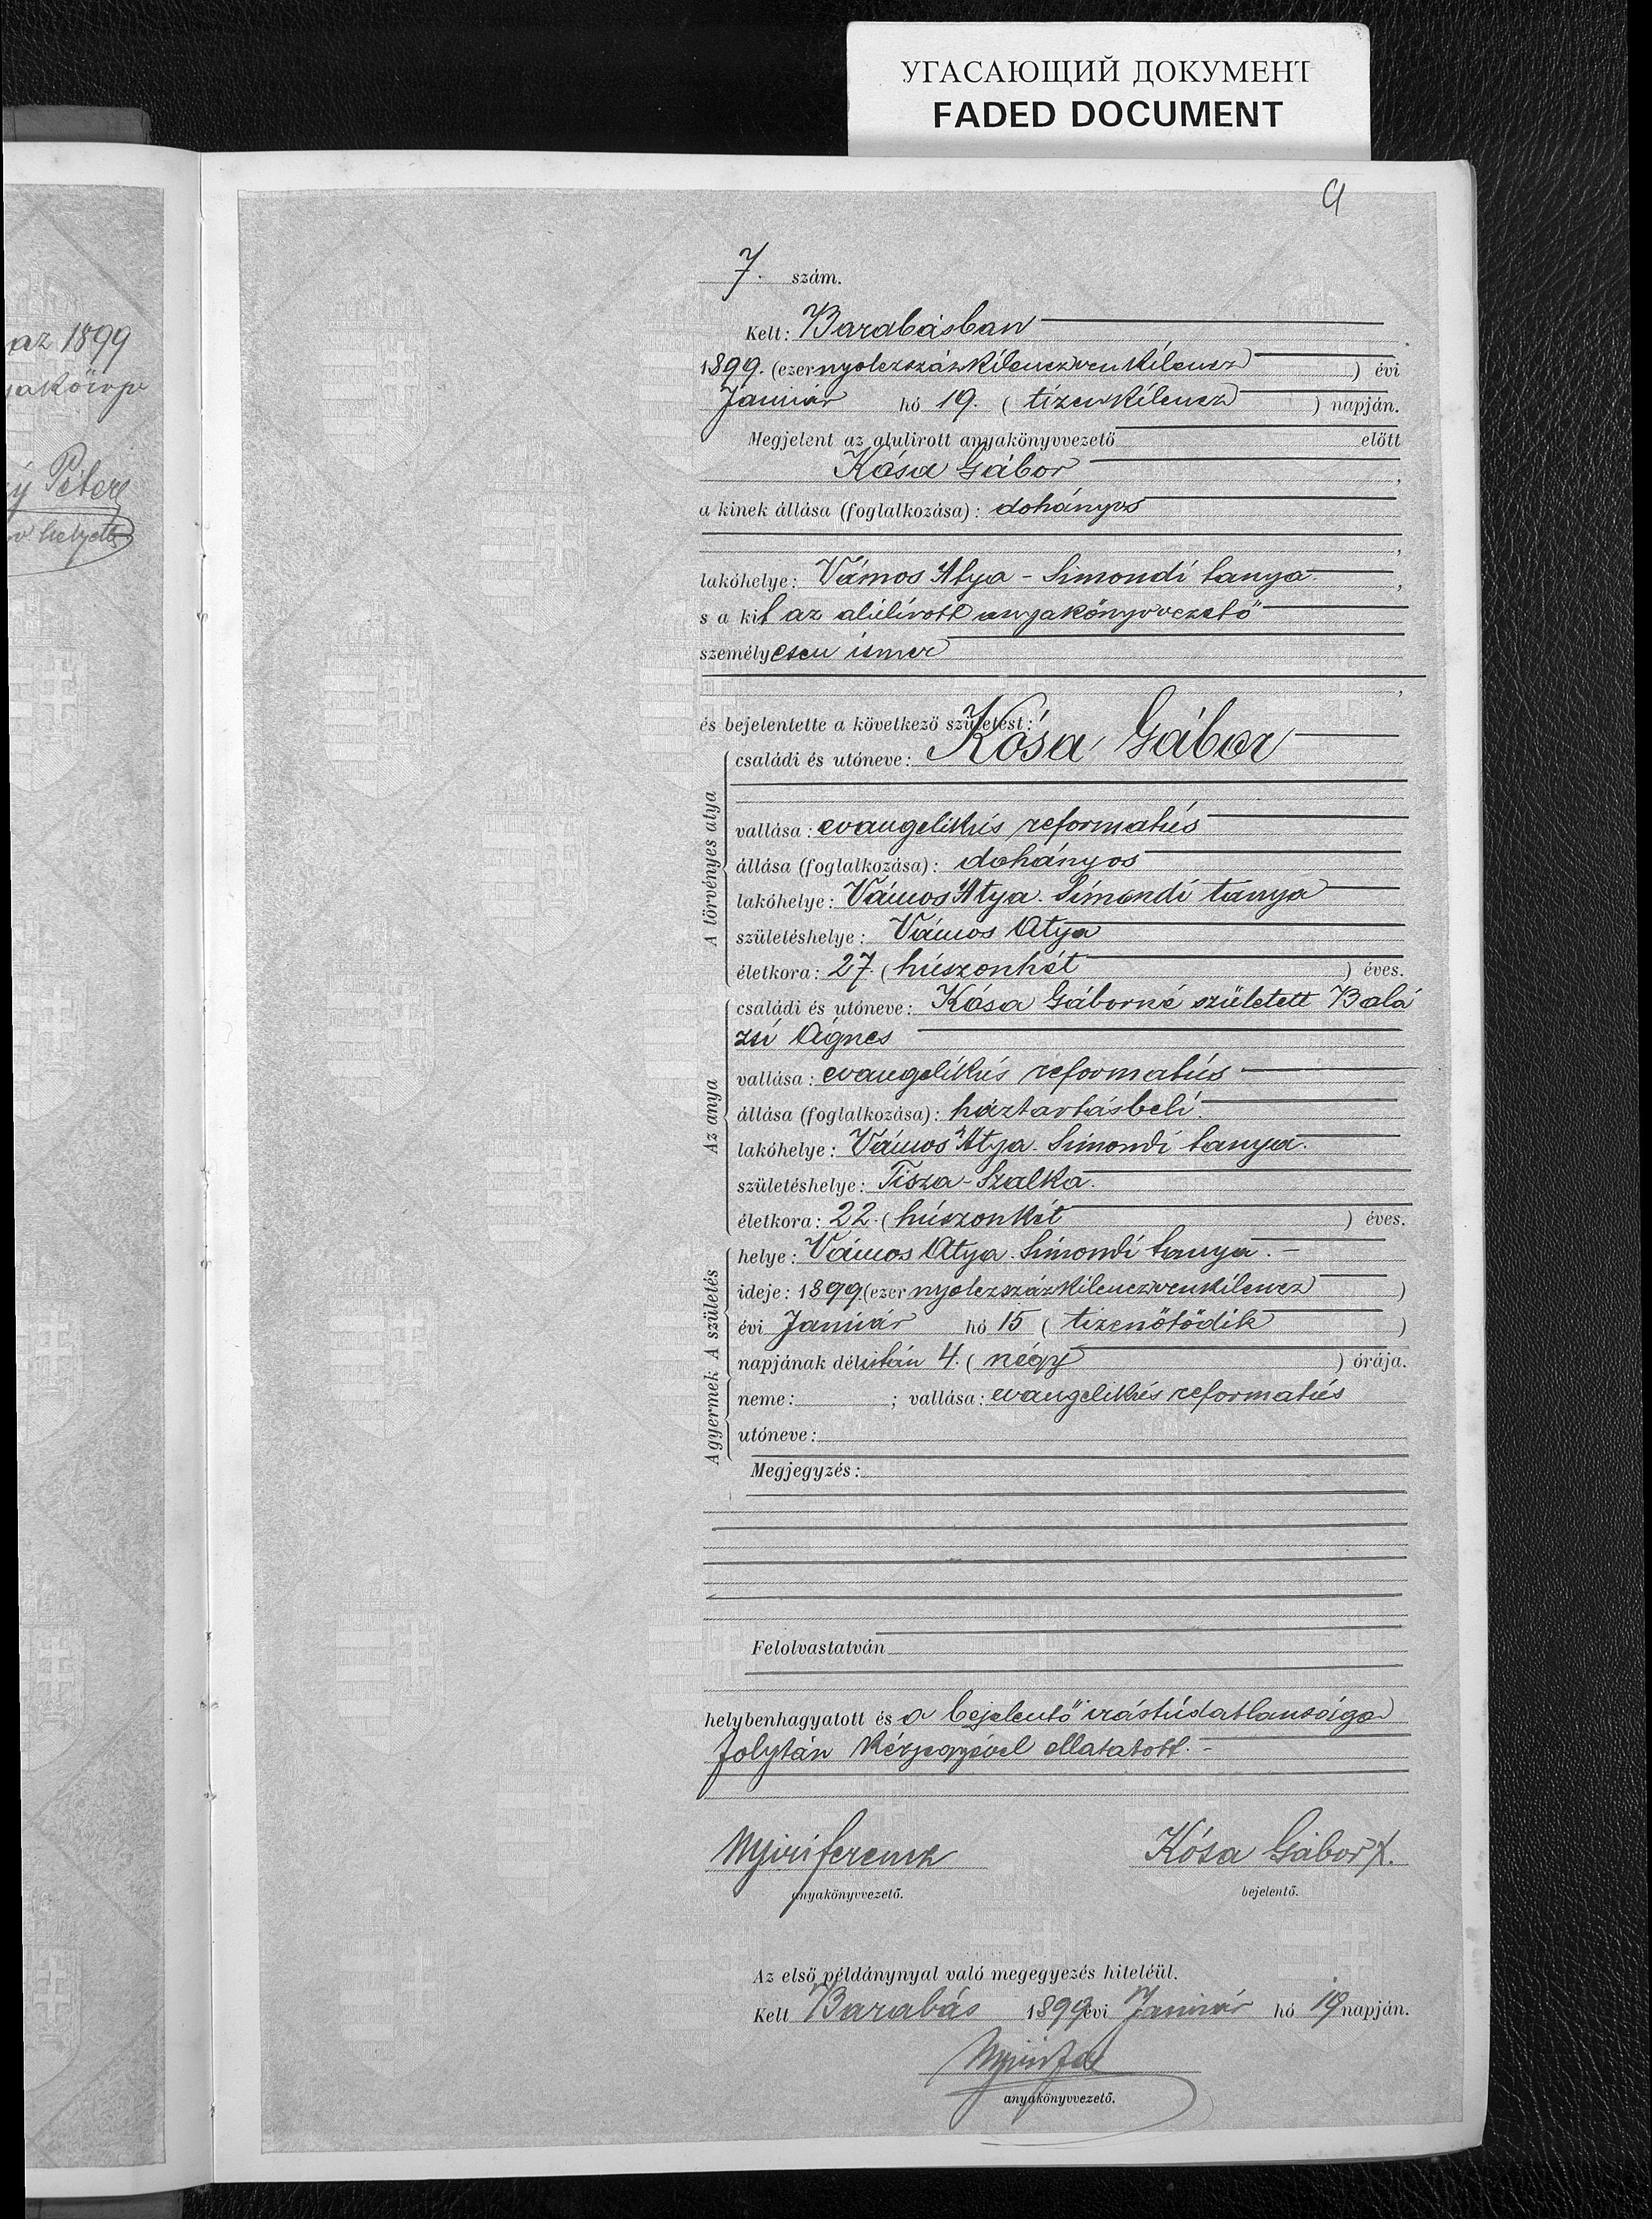 УГАСАЮЩИЙ ДОКУМЕНТ
FADED DOCUMENT
az 1899
Péter
helyett
7. szám.
Kelt: Barabásban
1899. (ezernyolczszázkilenczvenkilencz) évi
Január hó 19. (tizenkilencz) napján.
Megjelent az alulirott anyakönyvvezető előtt
Kósa Gábor,
a kinek állása (foglalkozása): dohányos
,
lakóhelye: Vámos Atya - Simondi tanya,
s a kit az alúlírott anyakönyvvezető
személyesen ismer
,
és bejelentette a következő születést:
A törvényes atya
családi és utóneve: Kósa Gábor
vallása: evangelikús reformatús
állása (foglalkozása): dohányos
lakóhelye: Vámos Atya. Simondi tanya
születéshelye: Vámos Atya
életkora: 27. (húszonhét) éves.
Az anya
családi és utóneve: Kósa Gáborné született Balá
zsi Ágnes
vallása: evangelikús reformatús
állása (foglalkozása): háztartásbeli.
lakóhelye: Vámos Atya. Simondi tanya.
születéshelye: Tisza-Szalka.
életkora: 22. (húszonkét) éves.
A születés
helye: Vámos Atya. Simondi tanya. -
ideje: 1899 (ezernyolczszázkilenczvenkilencz)
évi Január hó 15 (tizenötödik)
napjának délután 4. (négy) órája.
A gyermek
neme: ; vallása: evangelikús reformatús
utóneve:
Megjegyzés:
Felolvastatván
helybenhagyatott és a bejelentő irástúdatlansága
folytán kézjegyével ellatatott. -
Nyiri Ferencz Kósa Gábor X.
anyakönyvvezető. bejelentő.
Az első példánynyal való megegyezés hiteléül.
Kelt Barabás 1899 évi Január hó 19 napján.
anyakönyvvezető.